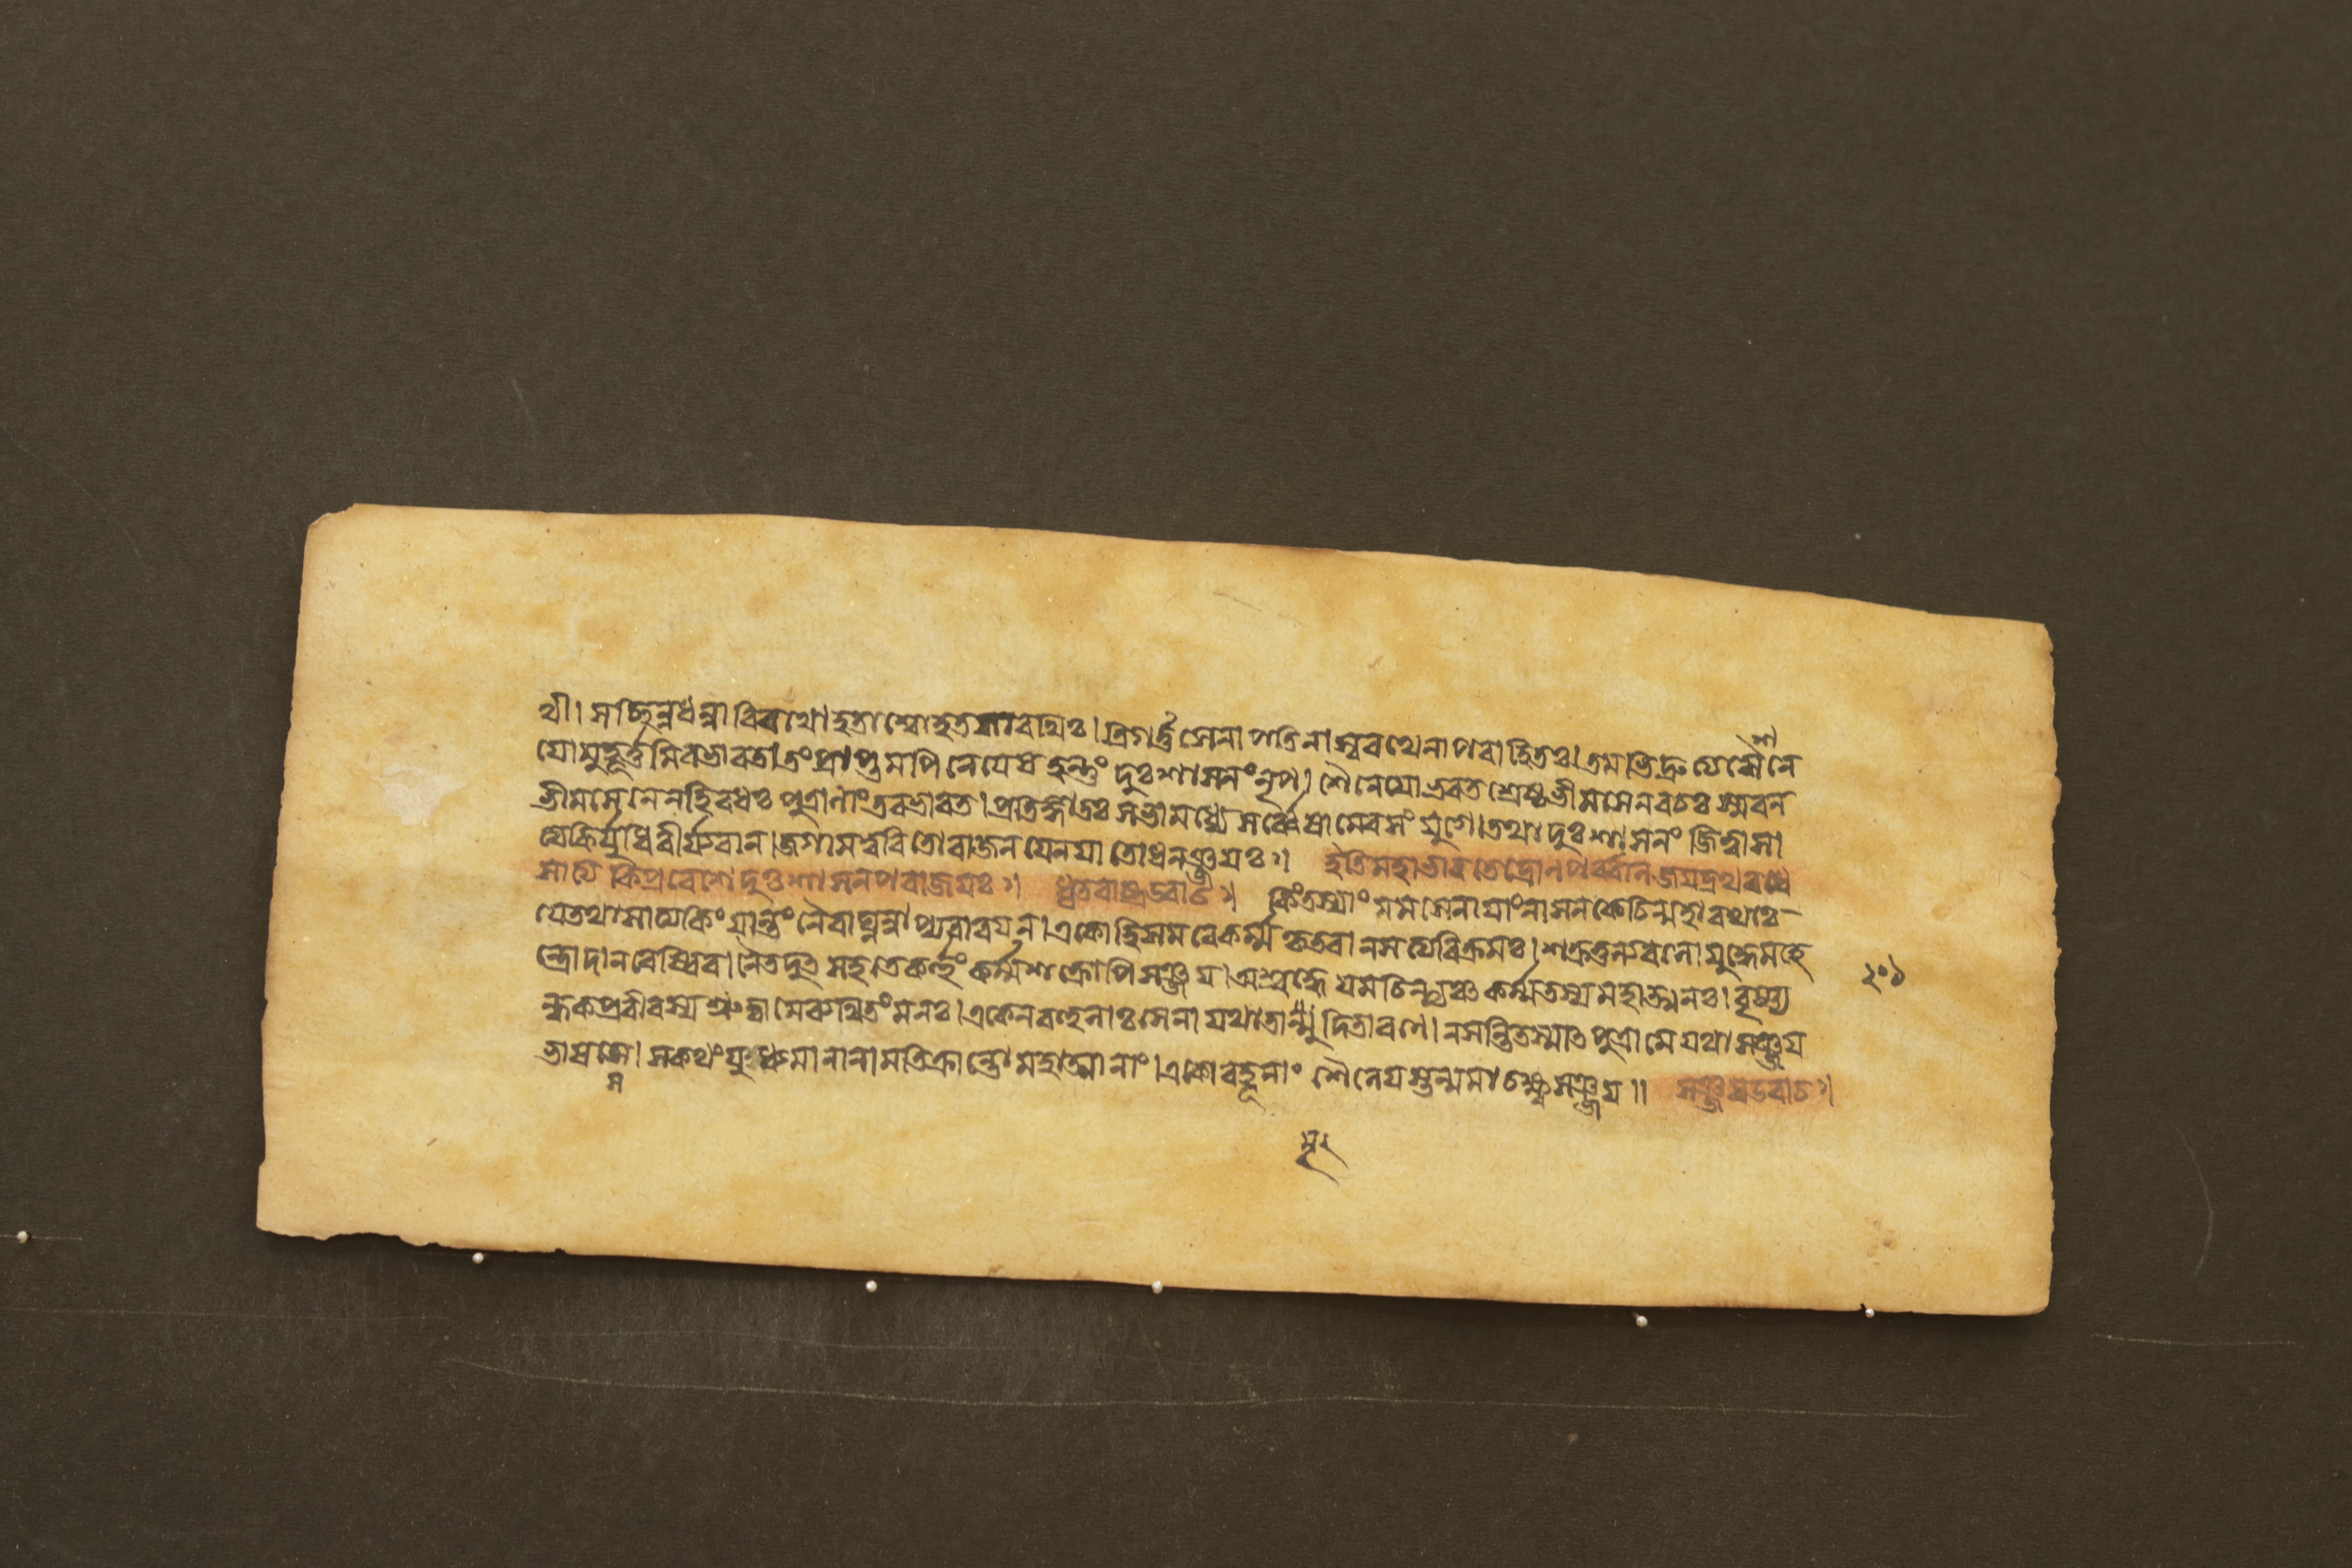 থী। সচ্ছিন্নধন্বা বিরথো হতাশ্বো হতসারথিঃ। ত্রিগর্ত্তসেনাপতিনা স্বরথেনাপবাহিতঃ। তমভিদ্রুত্য শৈনে
যো মুহূর্ত্তমিব ভারত। তং প্রাপ্তমপি নেয়েষ হন্তুং দুঃশাসনং নৃপ। শৈনেয়ো ভরতশ্রেষ্ঠ ভীমসেনবচঃ স্মরন
ভীমসেনেন হি বধঃ পুত্রানাং তব ভারত। প্রতিজ্ঞাতঃ সভামধ্যে সর্ব্বেষামেব সংযুগে। তথা দুঃশাসনং জিত্বা সা
ত্যকির্যুধি বীর্য্যবান। জগাম ত্বরিতো রাজন যেন যাতো ধনঞ্জয়ঃ॥ ইতি মহাভারতে দ্রোনপর্ব্বনি জয়দ্রথবধে
সাত্যকিপ্রবেশে দুঃশাসনপরাজয়ঃ॥ ধৃতরাষ্ট্র উবাচ॥ কিং তস্যাং মম সেনায়াং নাসন কেচিন্মহারথাঃ
যে তথা সাত্যকিং যান্তং নৈবাঘ্নন্নাপ্যবারয়ন। একো হি সমরে কর্ম্ম কৃতবান সত্যবিক্রমঃ। শক্রতুল্যবলো যুদ্ধে মহে
ন্দ্রো দানবেষ্বিব। নৈতদুত্সহতে কর্ত্তুং কর্ম্ম শক্রোপি সঞ্জয়। অশ্রদ্ধেয়মচিন্ত্যঞ্চ কর্ম্ম তস্য মহাত্মনঃ। বৃষ্ণ্য
২০১
ন্ধকপ্রবীরস্য শ্রুত্বা মে ব্যথিতং মনঃ। একেন বহুলাঃ সেনা যথা তা র্মর্দ্দিতা রণে। ন সন্তি তস্মাত পুত্রা মে যথা সঞ্জয়
ভাষসে। স কথং যুধ্যমানানামতিক্রান্তো মহাত্মনাং। একো বহূনাং শৈনেয়স্তন্মমাচক্ষ্ব সঞ্জয়॥ সঞ্জয় উবাচ॥